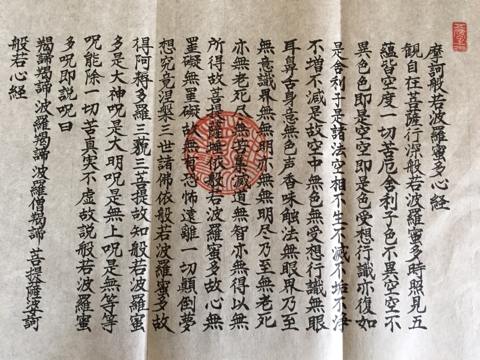 摩訶般若波羅蜜多心經
観自在菩薩行深般若波羅蜜多時照見五
蘊皆空度一切苦厄舎利子色不異空空不
異色色即是空空即是色受想行識亦復如
是舎利子是諸法空相不生不滅不垢不浄
不増不減是故空中無色無受想行識無眼
耳鼻舌身意無色声香味触法無眼界乃至
無意識界無無明亦無無明尽乃至無老死
亦無老死尽無苦集滅道無智亦無得以無
所得故菩提薩埵依般若波羅蜜多故心無
罣礙無罣礙故無有恐怖遠離一切顛倒夢
想究竟涅槃三世諸佛依般若波羅蜜多故
得阿耨多羅三藐三菩提故知般若波羅蜜
多是大神呪是大明呪是無上呪是無等等
呪能除一切苦真実不虚故説般若波羅蜜
多呪即説呪曰
羯諦羯諦波羅羯諦波羅僧羯諦 菩提薩婆訶
般若心經